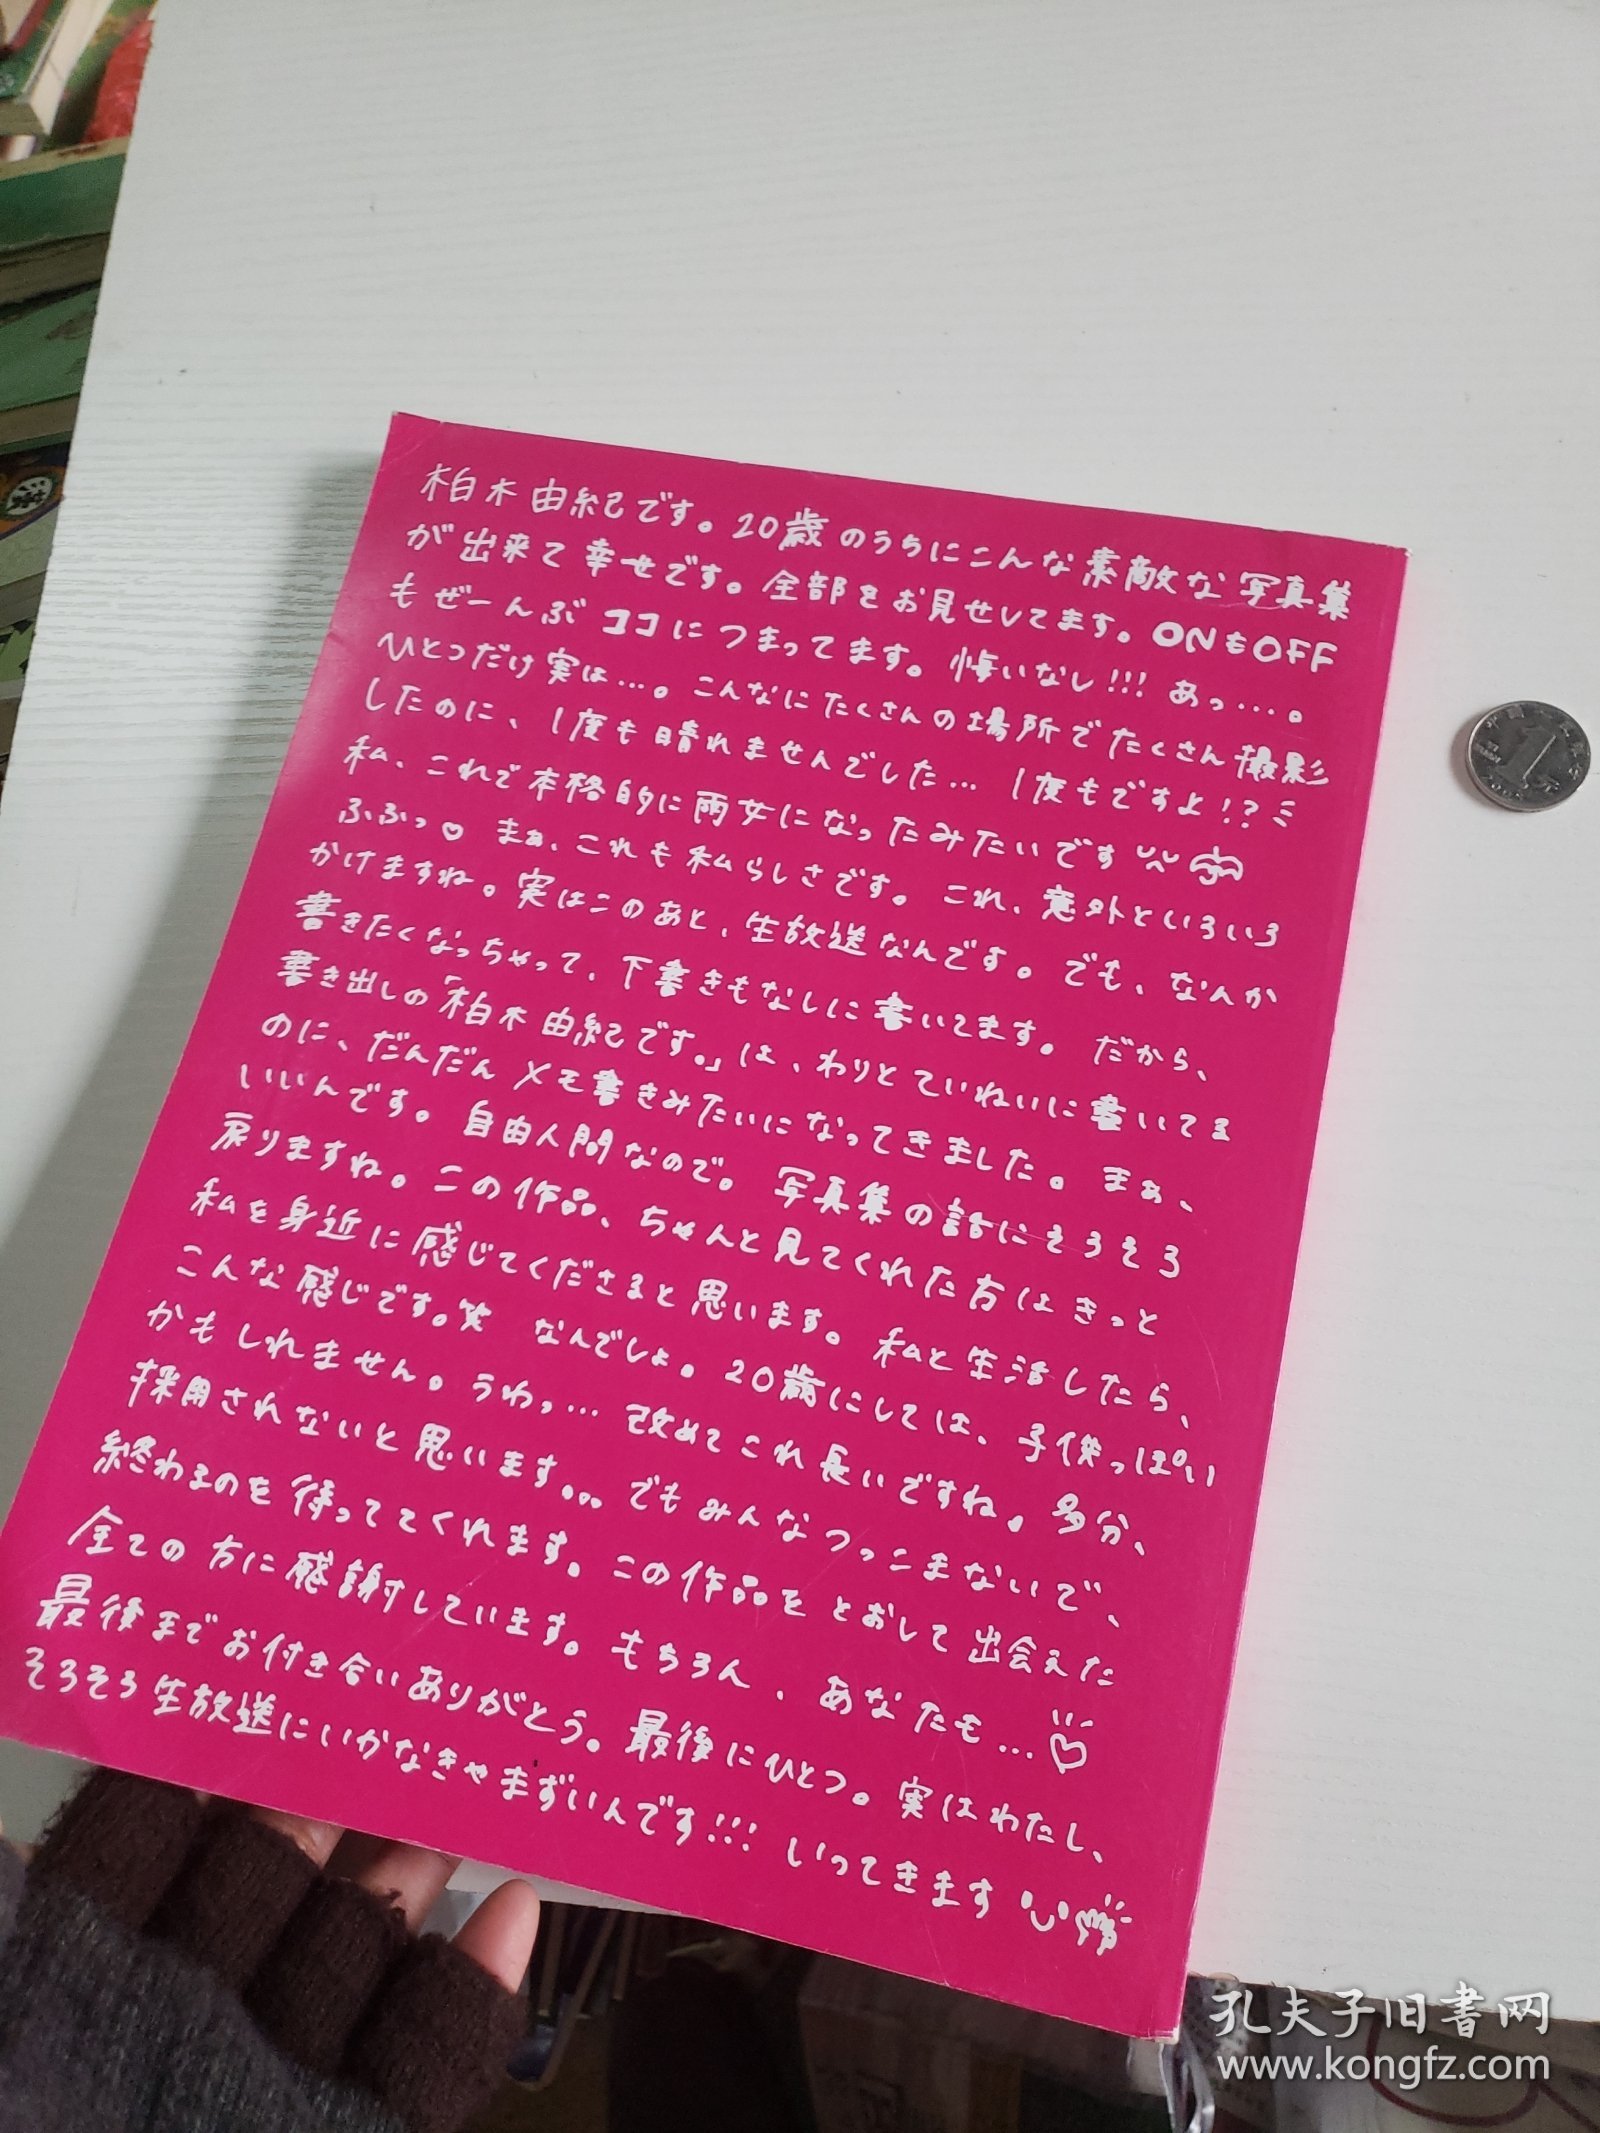 柏木由紀です。20歳のうちにこんな素敵な写真集
が出来て幸せです。全部をお見せしてます。ONもOFF
もぜーんぶココにつまってます。悔いなし!!! あっ…。
ひとつだけ実は…。こんなにたくさんの場所でたくさん撮影
したのに、1度も晴れませんでした… 1度もですよ!?
私、これで本格的に雨女になったみたいです
ふふっ♡ まぁ、これも私らしさです。これ、意外といろいろ
かけますね。実はこのあと、生放送なんです。でも、なんか
書きたくなっちゃって、下書きもなしに書いてます。だから、
書き出しの「柏木由紀です。」は、わりとていねいに書いてる
のに、だんだんメモ書きみたいになってきました。まぁ、
いいんです。自由人間なので。写真集の話にそろそろ
戻りますね。この作品、ちゃんと見てくれた方はきっと
私を身近に感じてくださると思います。私と生活したら、
こんな感じです。笑 なんでしょ。20歳にしては、子供っぽい
かもしれません。うわっ… 改めてこれ長いですね。多分、
採用されないと思います。。。でもみんなつっこまないで、
終わるのを待っててくれます。この作品をとおして出会えた
全ての方に感謝しています。もちろん、あなたも…♡
最後までお付き合いありがとう。最後にひとつ。実はわたし、
そろそろ生放送にいかなきゃまずいんです!!! いってきます
孔夫子旧书网
www.kongfz.com